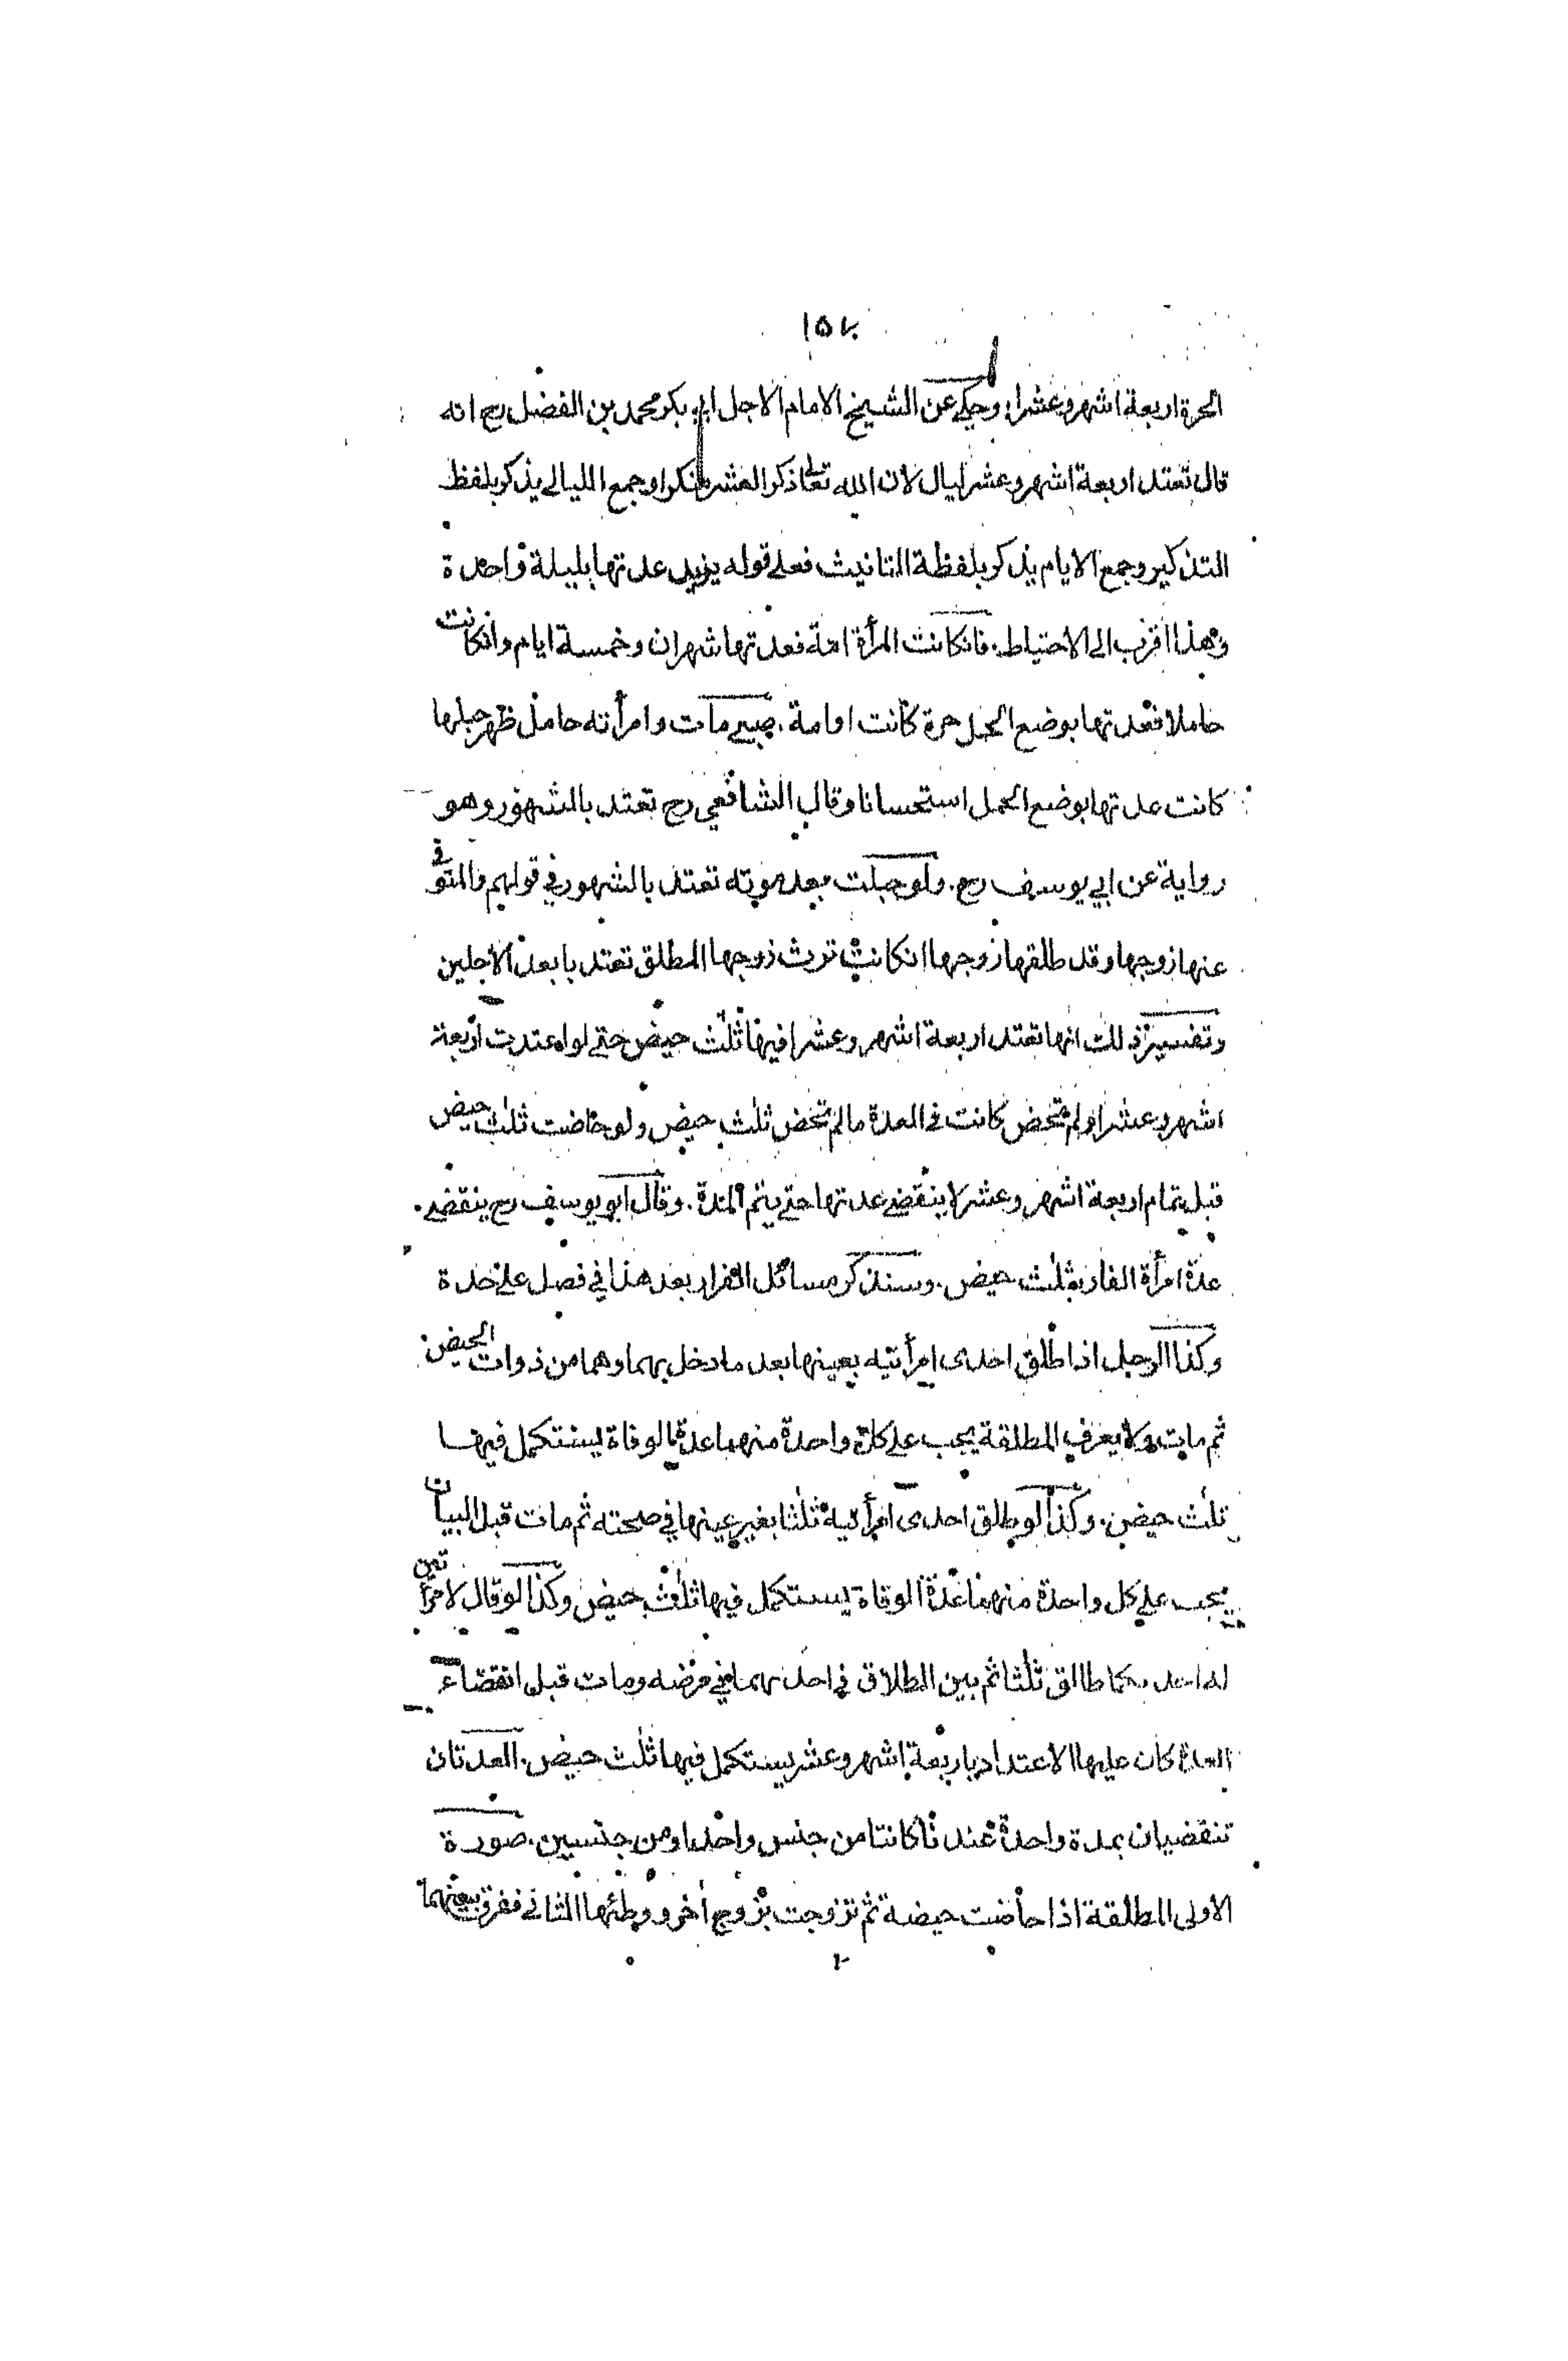 ١٥٧
الحرة اربعة اشهر وعشرا. وحكي عن الشيخ الامام الاجل ابي بكر محمد بن الفضل رح انه
قال تعتد اربعة اشهر وعشر ليال لان الله تعالى ذكر العشر منكرا وجمع الليالي يذكر بلفظ
التذكير وجمع الايام يذكر بلفظة التانيث فعلى قوله يزيد عدتها بليلة واحدة
وهذا اقرب الى الاحتياط. فانكانت المرأة امة فعدتها شهران وخمسة ايام وانكانت
حاملا فعدتها بوضع الحمل حرة كانت او امة. صبي مات وامرأته حامل ظهر حبلها
كانت عدتها بوضع الحمل استحسانا وقال الشافعي رح تعتد بالشهور وهو
رواية عن ابي يوسف رح. ولو حبلت بعد موته تعتد بالشهور في قولهم والمتوفى
عنها زوجها وقد طلقها زوجها انكانت ترث زوجها المطلق تعتد بابعد الاجلين
وتفسير ذلك انها تعتد اربعة اشهر وعشرا فيها ثلث حيض حتى لو اعتدت اربعة
اشهر وعشرا ولم تحض كانت في العدة ما لم تحض ثلث حيض ولو حاضت ثلث حيض
قبل تمام اربعة اشهر وعشر لا ينقضي عدتها حتى يتم المدة. وقال ابو يوسف رح ينقضي
عدة امرأة الفار بثلث حيض. وسنذكر مسائل الفرار بعد هذا في فصل على حدة
وكذا الرجل اذا طلق احدى امرأتيه بعينها بعد ما دخل بهما وهما من ذوات الحيض
ثم مات ولا يعرف المطلقة يجب على كل واحدة منهما عدة الوفاة يستكمل فيها
ثلث حيض. وكذا لو طلق احدى امرأتيه ثلثا بغير عينها في صحته ثم مات قبل البيان
يجب على كل واحدة منهما عدة الوفاة يستكمل فيها ثلث حيض وكذا لو قال لامرأتين
له احدىكما طالق ثلثا ثم بين الطلاق في احدىهما في مرضه ومات قبل انقضاء
العدة كان عليها الاعتداد باربعة اشهر وعشر يستكمل فيها ثلث حيض. العدتان
تنقضيان بمدة واحدة عندنا كانتا من جنس واحد او من جنسين. صورة
الاولى المطلقة اذا حاضت حيضة ثم تزوجت بزوج اخر ووطئها الثاني ففرق بينهما